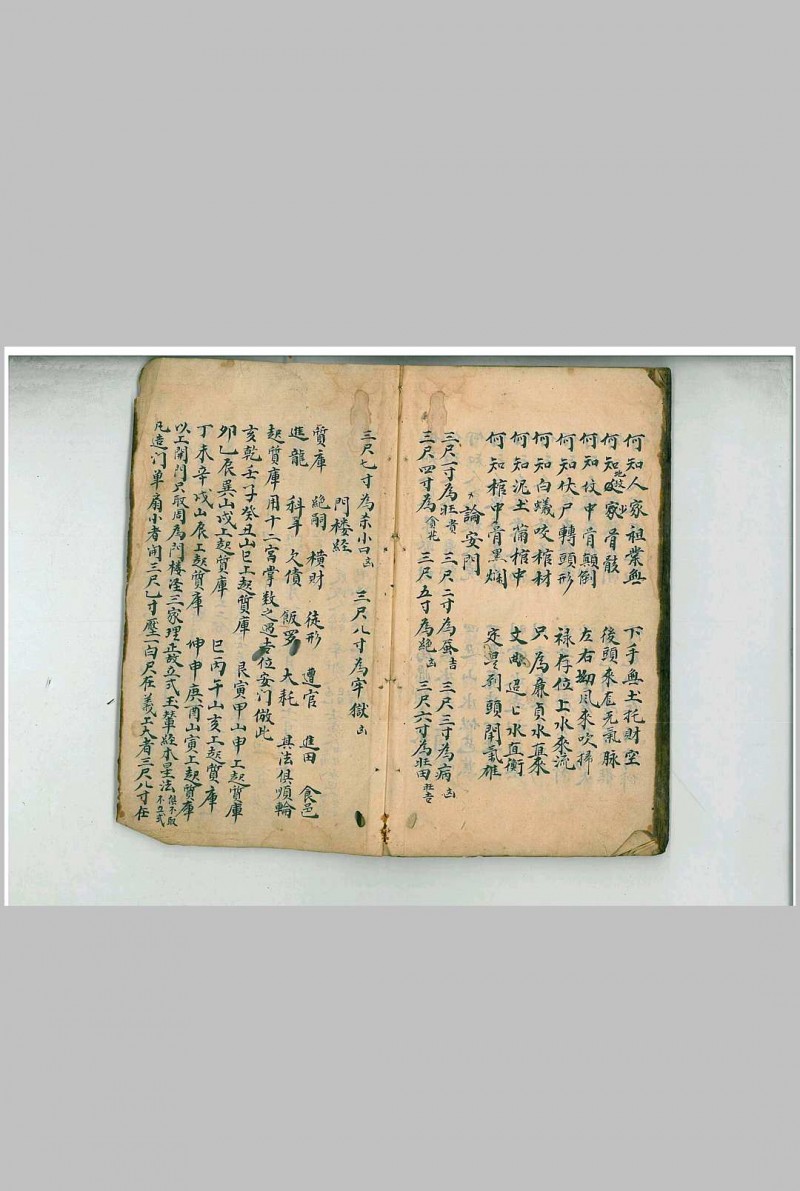 何知人家祖業無 下手無土托財空
何知家骨骸 後頭來龙元氣脉
何知坟中骨顛倒 左右坳風來吹掃
何知伏尸轉頭形 祿存位上水來流
何知白蟻咬棺材 只為廉貞水直來
何知泥土蒲棺中 文曲水直衡
何知棺中骨黑爛 定是頭閗氣
論安門
三尺一寸為旺貴 三尺二寸為吉 三尺三寸為病凶
三尺四寸為貪花 三尺五寸為絶凶 三尺六寸為旺田旺吉
三尺七寸為杀小口凶 三尺八寸為牢獄凶
門楼經
質庫 絶嗣 橫財 徒形 遭官 進田 食邑
進龍 科年 欠債 飯羅 大耗 其法俱順輪
起質庫用十二宮掌数之遇吉位安门倣此
亥乾壬子癸丑山巳上起質庫 艮寅甲山申上起質庫
卯乙辰巽山戌上起質庫 巳丙午山亥上起質庫
丁未辛戌山辰上起質庫 坤申庚酉山寅上起質庫
以上開門只取周為门楼三家理正故立式玉輦經木星法俱不取不立式
凡造门單扇小者開三尺乙寸壓一白尺在義上大者三尺八寸在